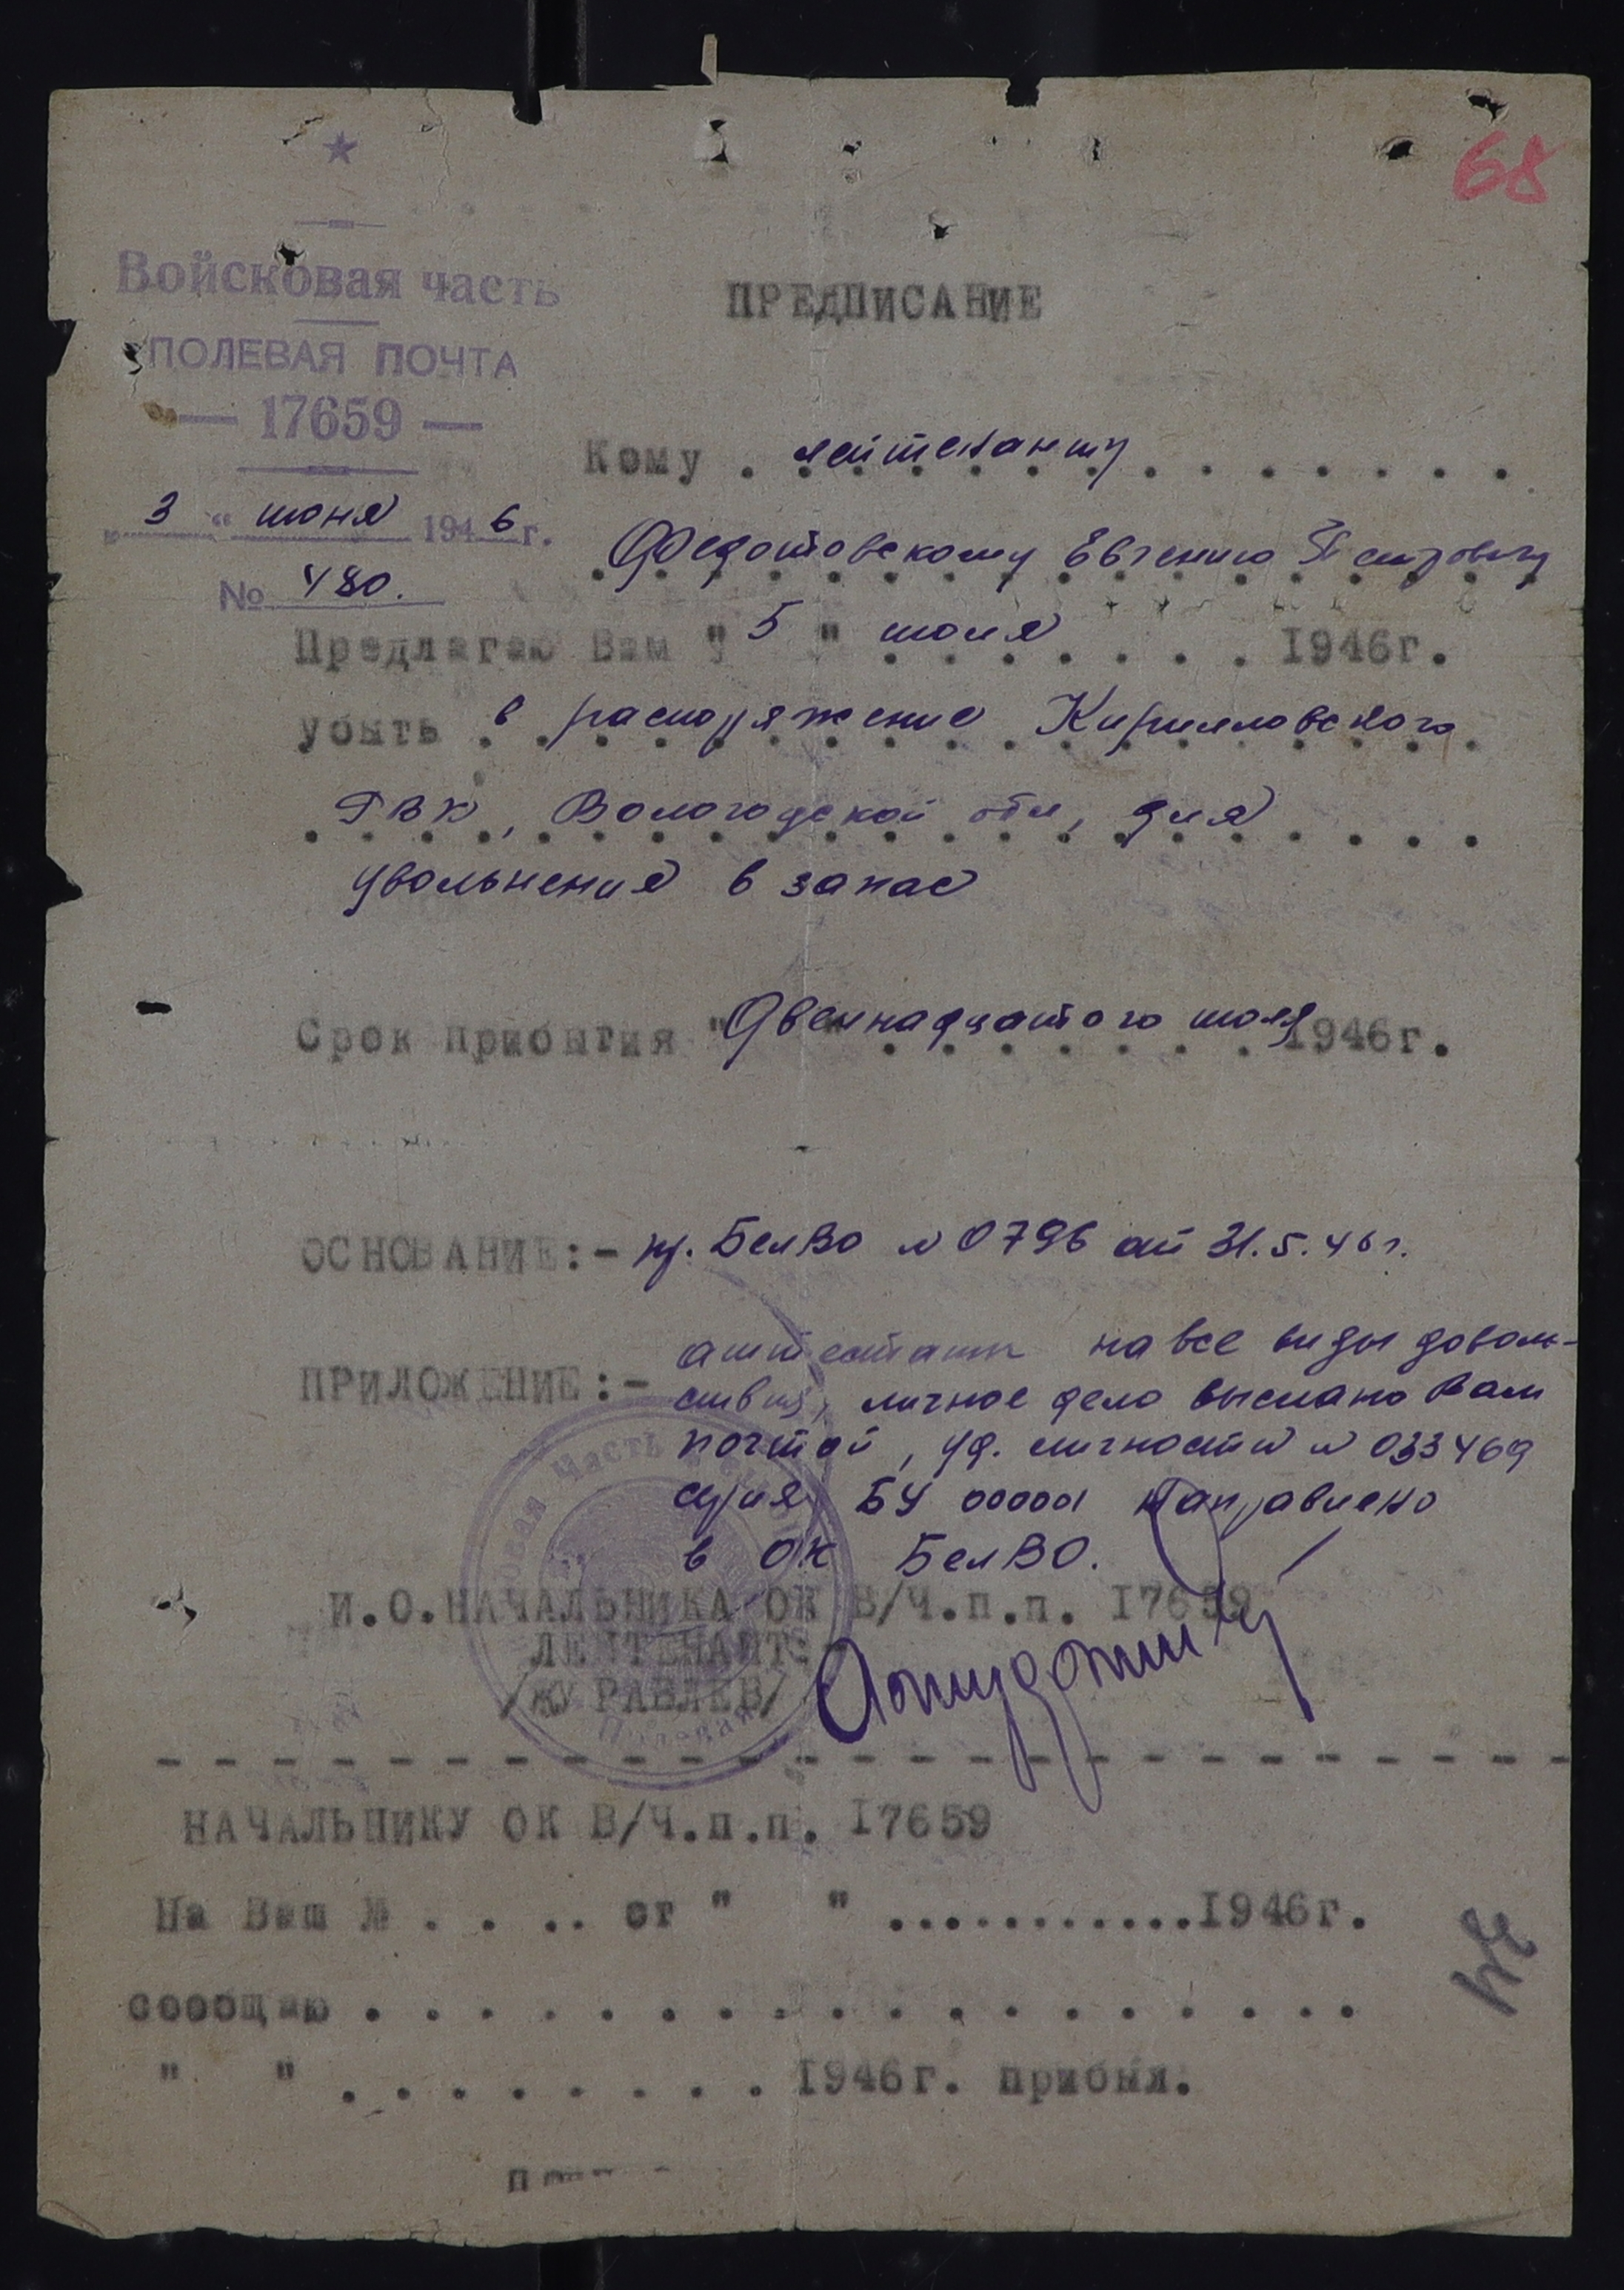 68
Войсковая часть
ПОЛЕВАЯ ПОЧТА
— 17659 —
"3" июня 1946г.
№ 480.
ПРЕДПИСАНИЕ
Кому . лейтенанту
Федотовскому Евгению Петровичу
Предлагаю Вам "5" июля 1946г.
убыть в распоряжение Кирилловского
РВК, Вологодской обл, для
увольнения в запас
Срок прибытия "Двеннадцатого июля 1946г.
ОСНОВАНИЕ:- пр. БелВО № 0796 от 31.5.46г.
ПРИЛОЖЕНИЕ:- аттестаты на все виды доволь-
ствия, личное дело выслано Вам
почтой, уд. личности № 033469
серия БУ 000001 направлено
в ОК БелВО.
И.О.НАЧАЛЬНИКА ОК В/Ч.п.п. 17659
ЛЕЙТЕНАНТ:-
/ЖУРАВЛЕВ/
НАЧАЛЬНИКУ ОК В/Ч.п.п. 17659
На Ваш № . . .. от " " ............1946г.
сообщаю . . . . . . . . . . . . . . . . . .
" " . . . . . . . . 1946г. прибыл.